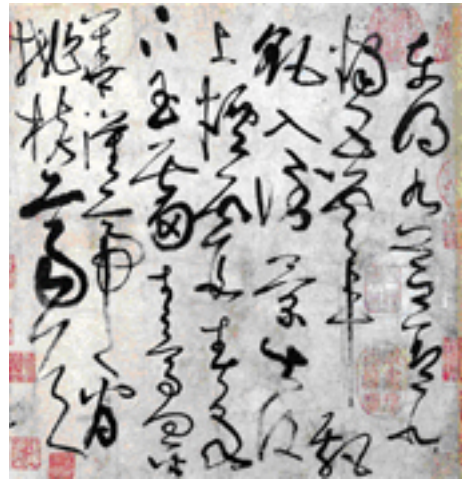 東明九芝蓋北
燭五雲車飄
颻入倒景出沒
上煙霞春泉
下玉霤青鳥向金
華漢帝看
桃核齊侯問棗